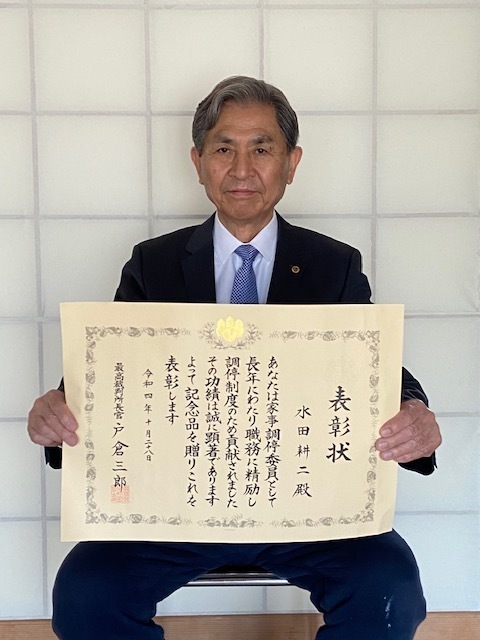 表彰状
水田耕二殿
あなたは家事調停委員として
長年にわたり職務に精励し
調停制度のため貢献されました
その功績は誠に顕著であります
よって記念品を贈りこれを
表彰します
令和四年十月二八日
最高裁判所長官戸倉三郎